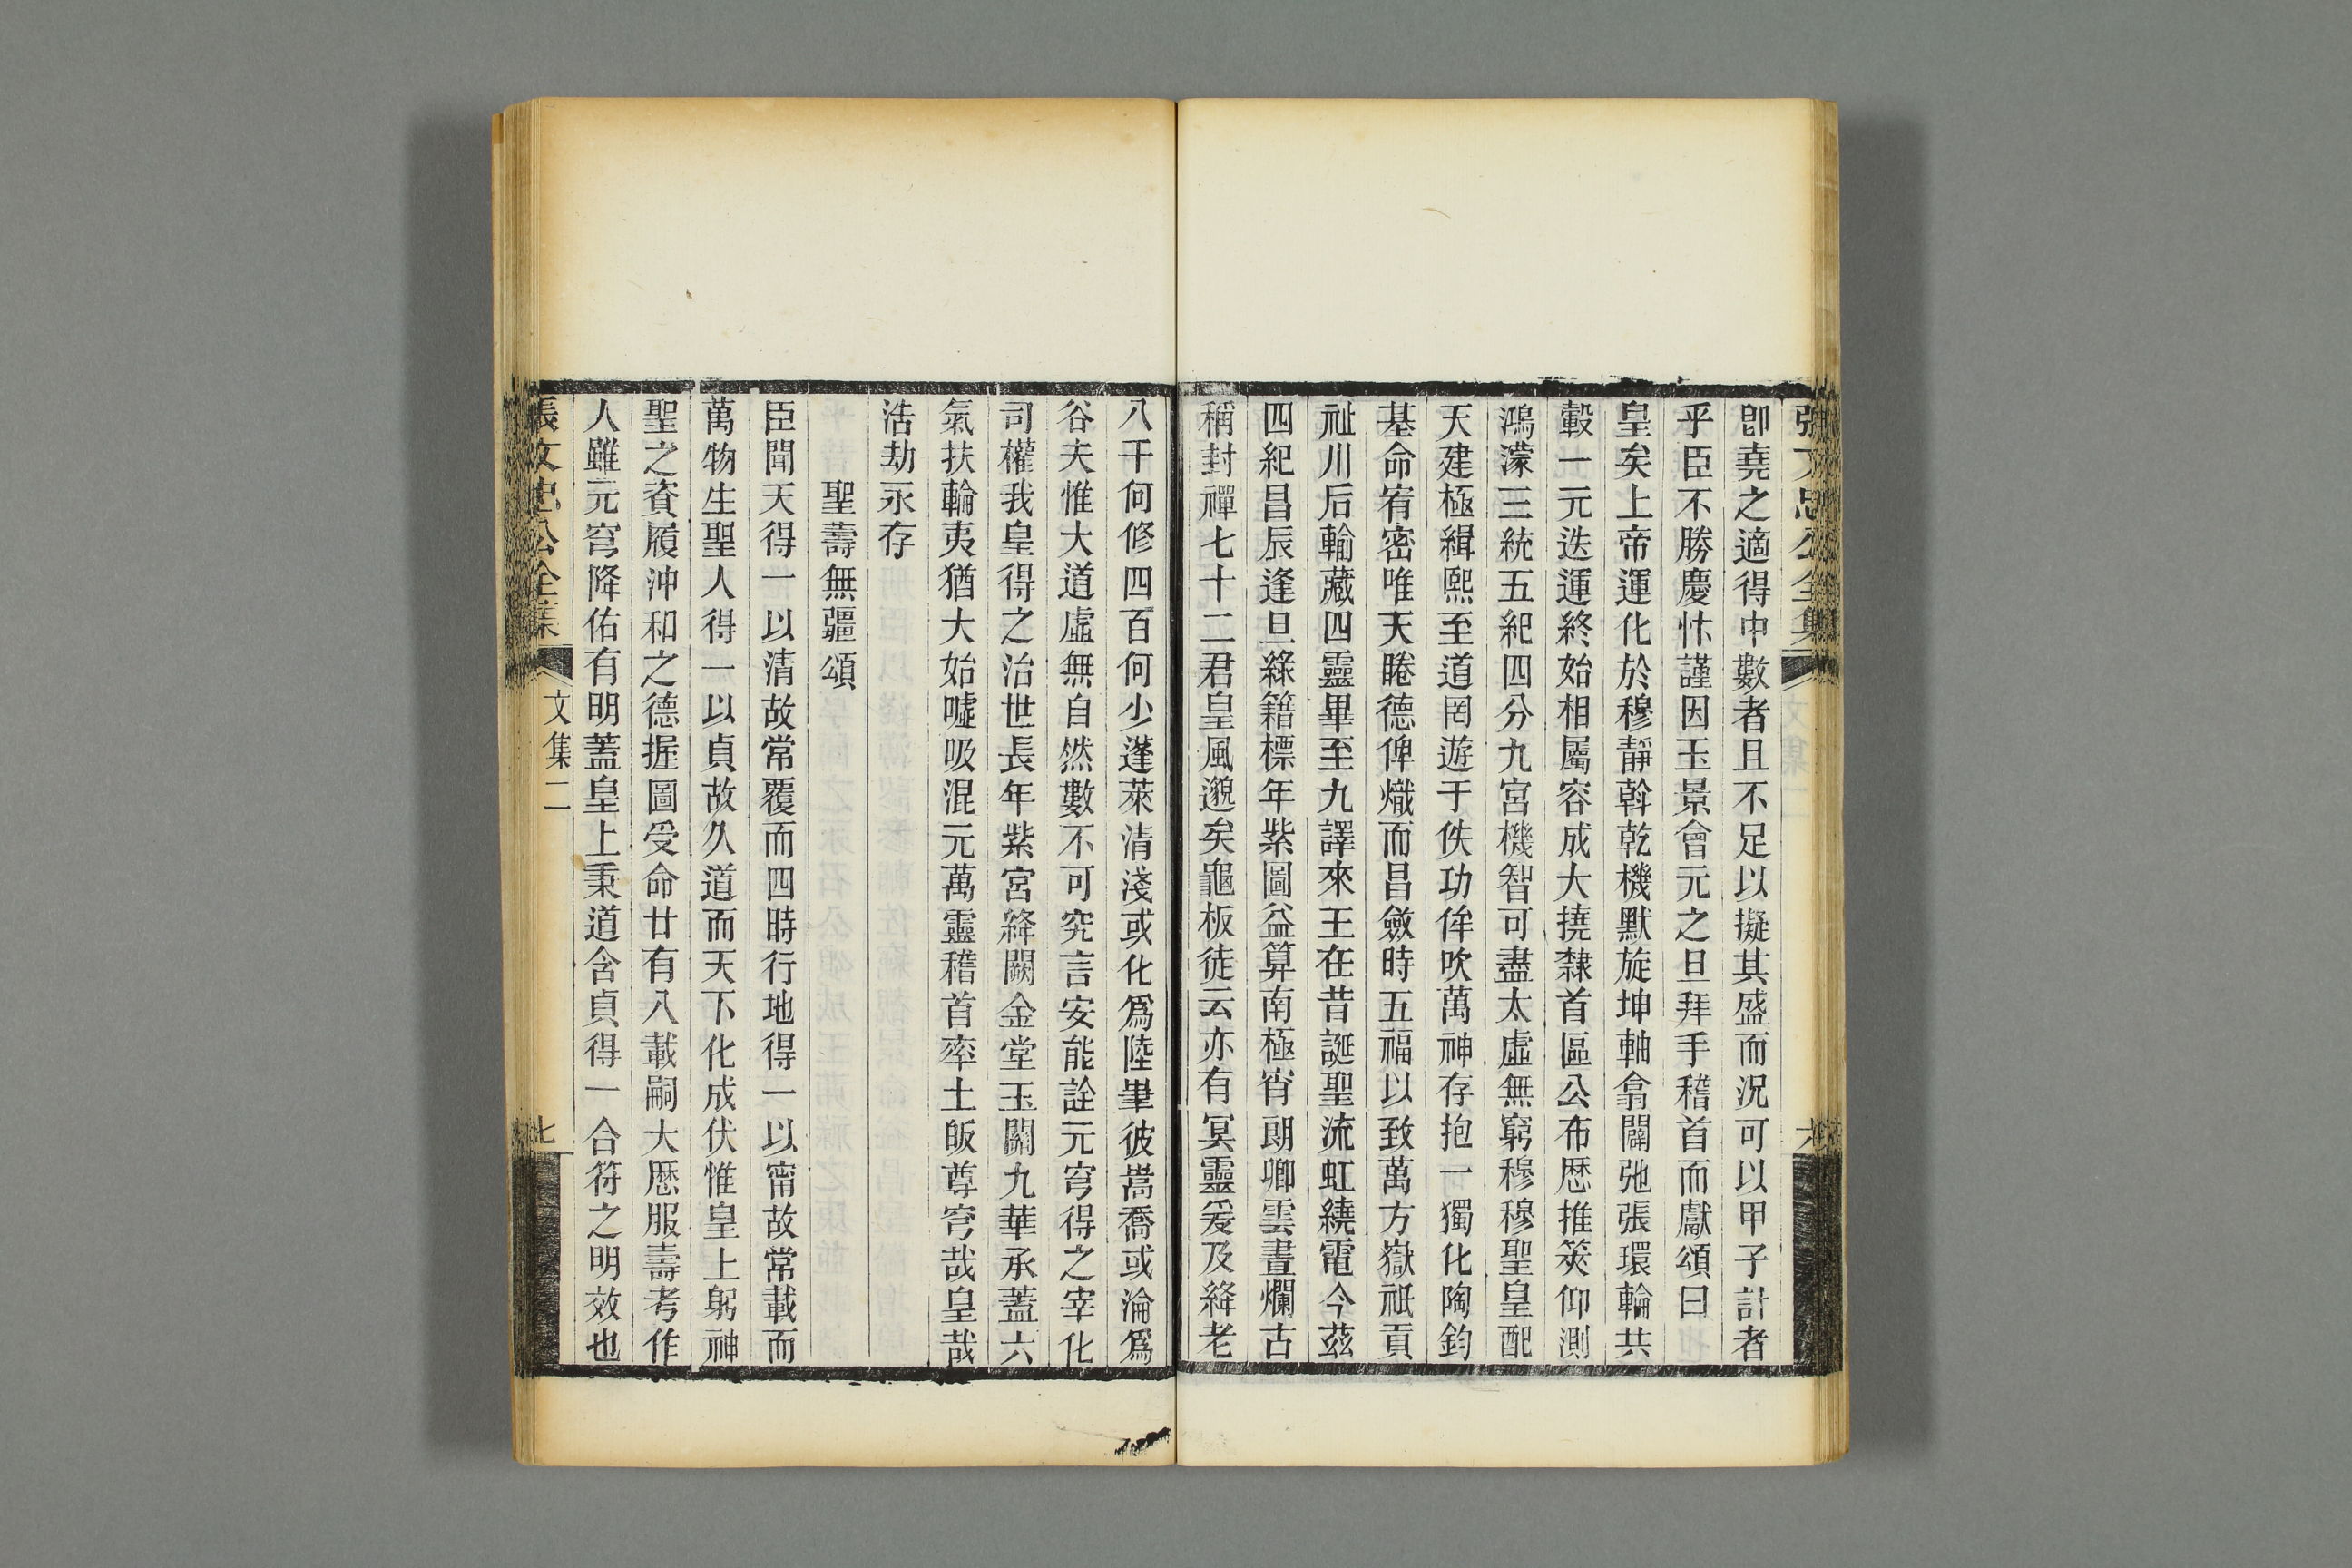 張文忠公全集
六
卽堯之適得中數者且不足以擬其盛而況可以甲子計者
乎臣不勝慶忭謹因玉景會元之旦拜手稽首而獻頌曰
皇矣上帝運化於穆靜斡乾機默旋坤軸翕闢弛張環輪共
轂一元迭運終始相屬容成大撓隸首區公布歷推筴仰測
鴻濛三統五紀四分九宮機智可盡太虛無窮穆穆聖皇配
天建極緝熙至道罔遊于佚功侔吹萬神存抱一獨化陶鈞
基命宥密唯天睠德俾熾而昌斂時五福以致萬方嶽祇貢
祉川后輸藏四靈畢至九譯來王在昔誕聖流虹繞電今茲
四紀昌辰逢旦綠籍標年紫圖益算南極宵朗卿雲晝爛古
稱封禪七十二君皇風邈矣龜板徒云亦有冥靈爰及絳老
八千何修四百何少蓬萊清淺或化爲陸聿彼嵩喬或淪爲
谷夫惟大道虛無自然數不可究言安能詮元穹得之宰化
司權我皇得之治世長年紫宮絳闕金堂玉闞九華承蓋六
氣扶輪夷猶大始噓吸混元萬靈稽首率土皈尊穹哉皇哉
浩劫永存
聖壽無疆頌
臣聞天得一以清故常覆而四時行地得一以甯故常載而
萬物生聖人得一以貞故久道而天下化成伏惟皇上躬神
聖之資履沖和之德握圖受命廿有八載嗣大歷服壽考作
人雖元穹降佑有明蓋皇上秉道含貞得一合符之明效也
張文忠公全集
文集二
七